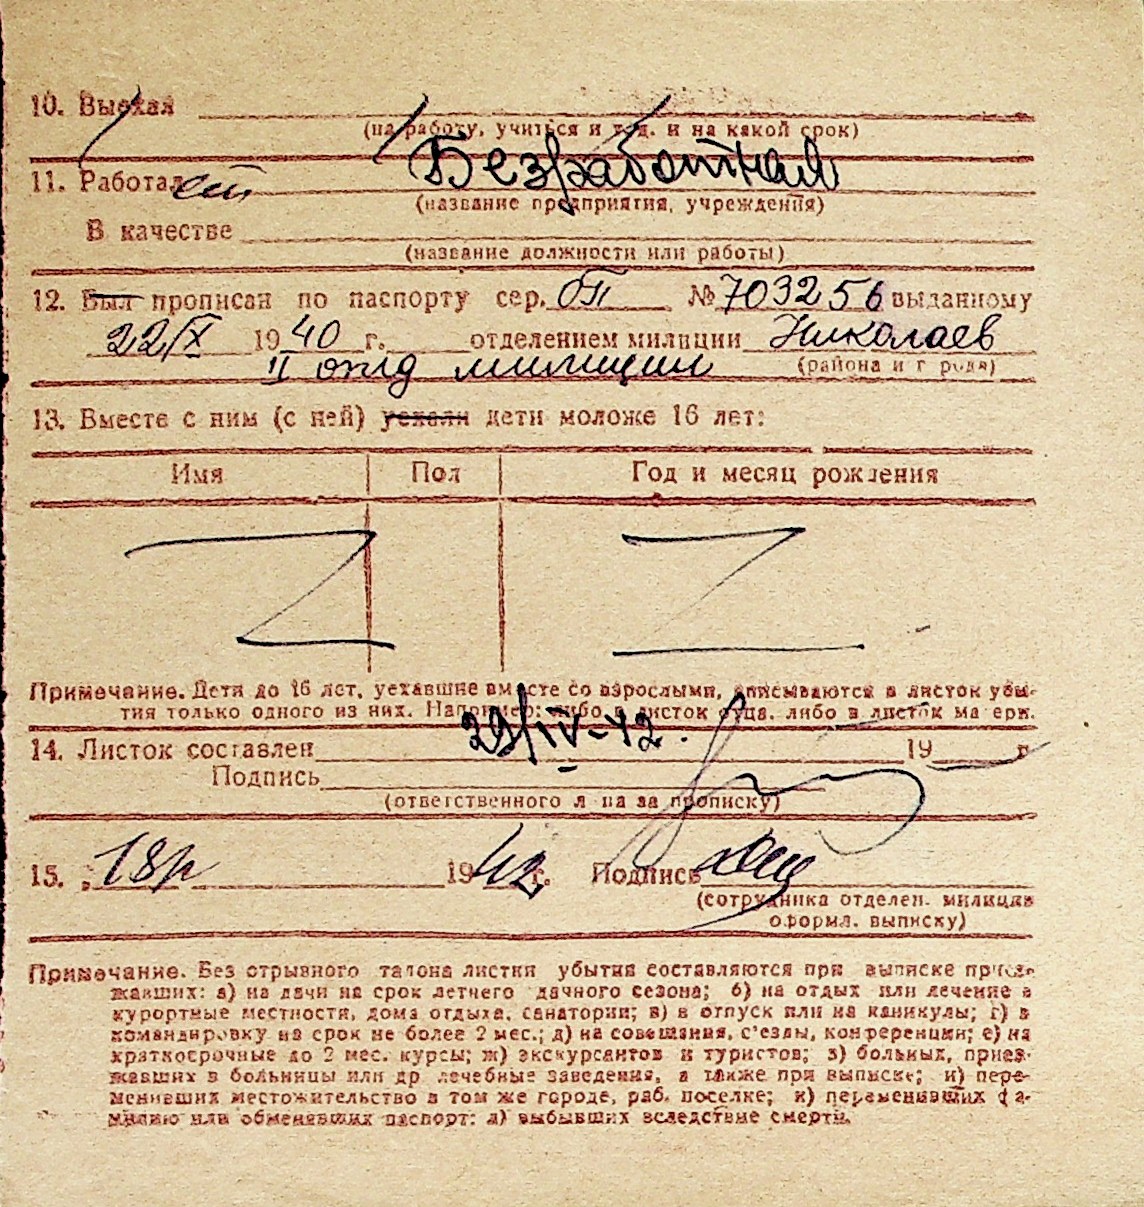 10. Выехал
(на работу, учиться и т. д. и на какой срок)
Безработная
11. Работает
(название предприятия, учреждения)
В качестве
(название должности или работы)
12. Был прописан по паспорту сер. ОП № 703256 выданному
22/X 1940 г. отделением милиции Николаев
II отд милиции (района и г рода)
13. Вместе с ним (с ней) уехали дети моложе 16 лет:
Имя Пол Год и месяц рождения
Примечание. Дети до 16 лет, уехавшие вместе со взрослыми, вписываются в листок убы-
тия только одного из них. Например: либо в листок отца, либо в листок ма ери.
29/IV-42.
14. Листок составлен 19 г
Подпись
(ответственного л ца за прописку)
15. 1942 г. Подпись
(сотрудника отделен. милиции
оформл. выписку)
Примечание. Без отрывного талона листки убытия составляются при выписке приез-
жавших: а) на дачи на срок летнего дачного сезона; б) на отдых или лечение в
курортные местности, дома отдыха, санатории; в) в отпуск или на каникулы; г) в
командировку на срок не более 2 мес.; д) на совещания, с'езды, конференции; е) на
краткосрочные до 2 мес. курсы; ж) экскурсантов и туристов; з) больных, приез-
жавших в больницы или др лечебные заведения, а также при выписке; и) пере-
менивших местожительство в том же городе, раб. поселке; к) переменивших фа-
милию или обменявших паспорт; л) выбывших вследствие смерти.